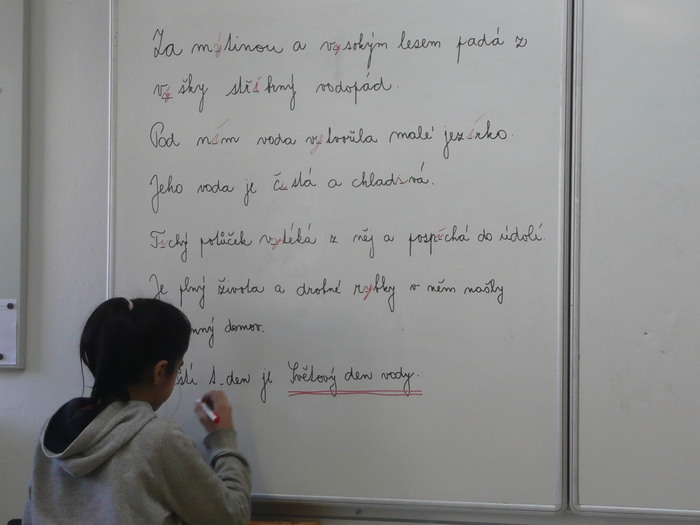 Za mýtinou a vysokým lesem padá z
vyšky stříbrný vodopád.
Pod ním voda vytvořila malé jezírko.
Jeho voda je čistá a chladivá.
Tichý potůček vytéká z něj a pospíchá do údolí.
Je plný života a drobné rybky v něm našly
domov.
1. den je Světový den vody.